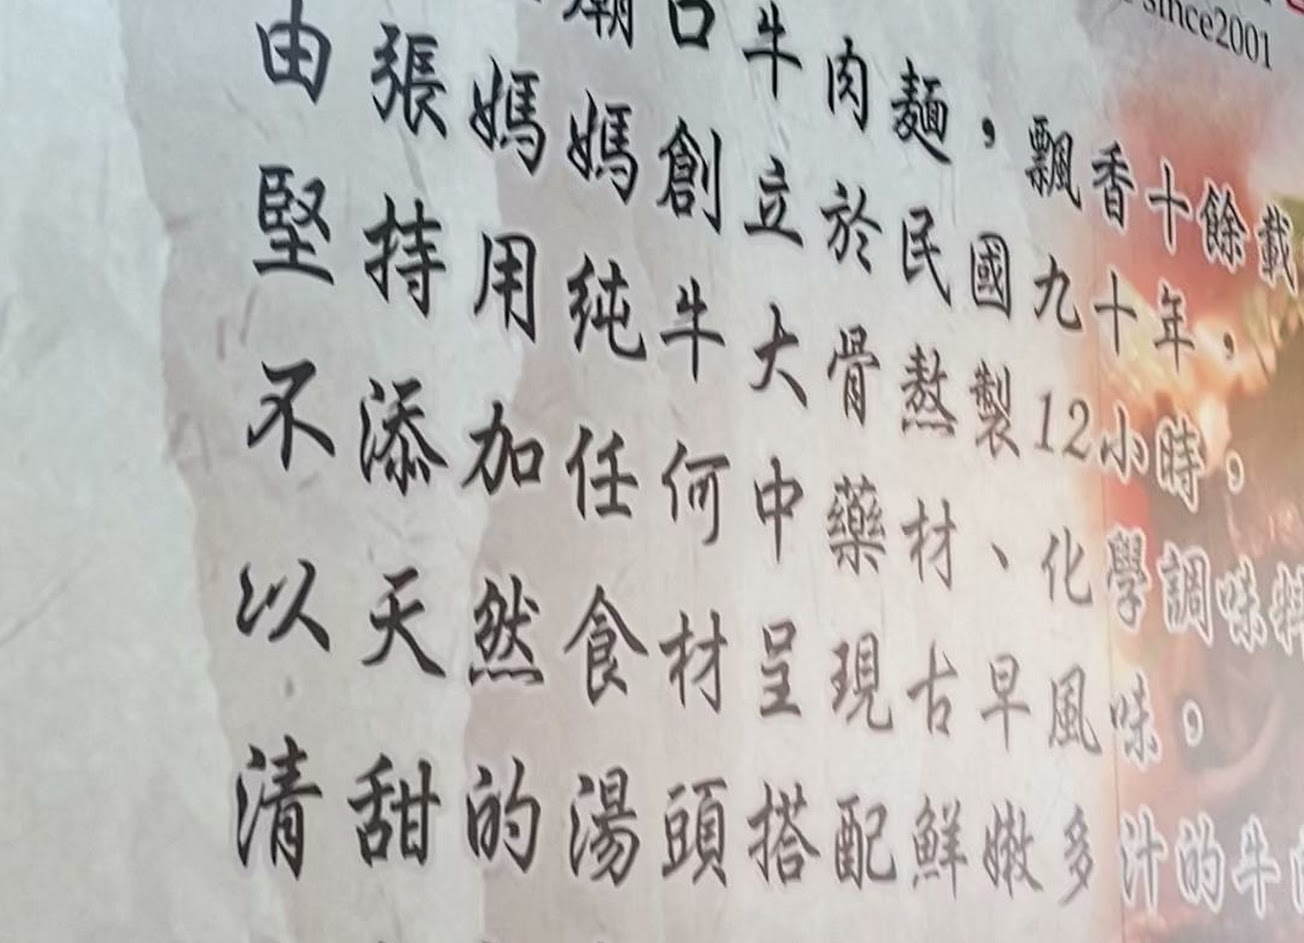 since2001
廟口牛肉麵，飄香十餘載
由張媽媽創立於民國九十年，
堅持用純牛大骨熬製12小時，
不添加任何中藥材、化學調味料
以天然食材呈現古早風味，
清甜的湯頭搭配鮮嫩多汁的牛肉